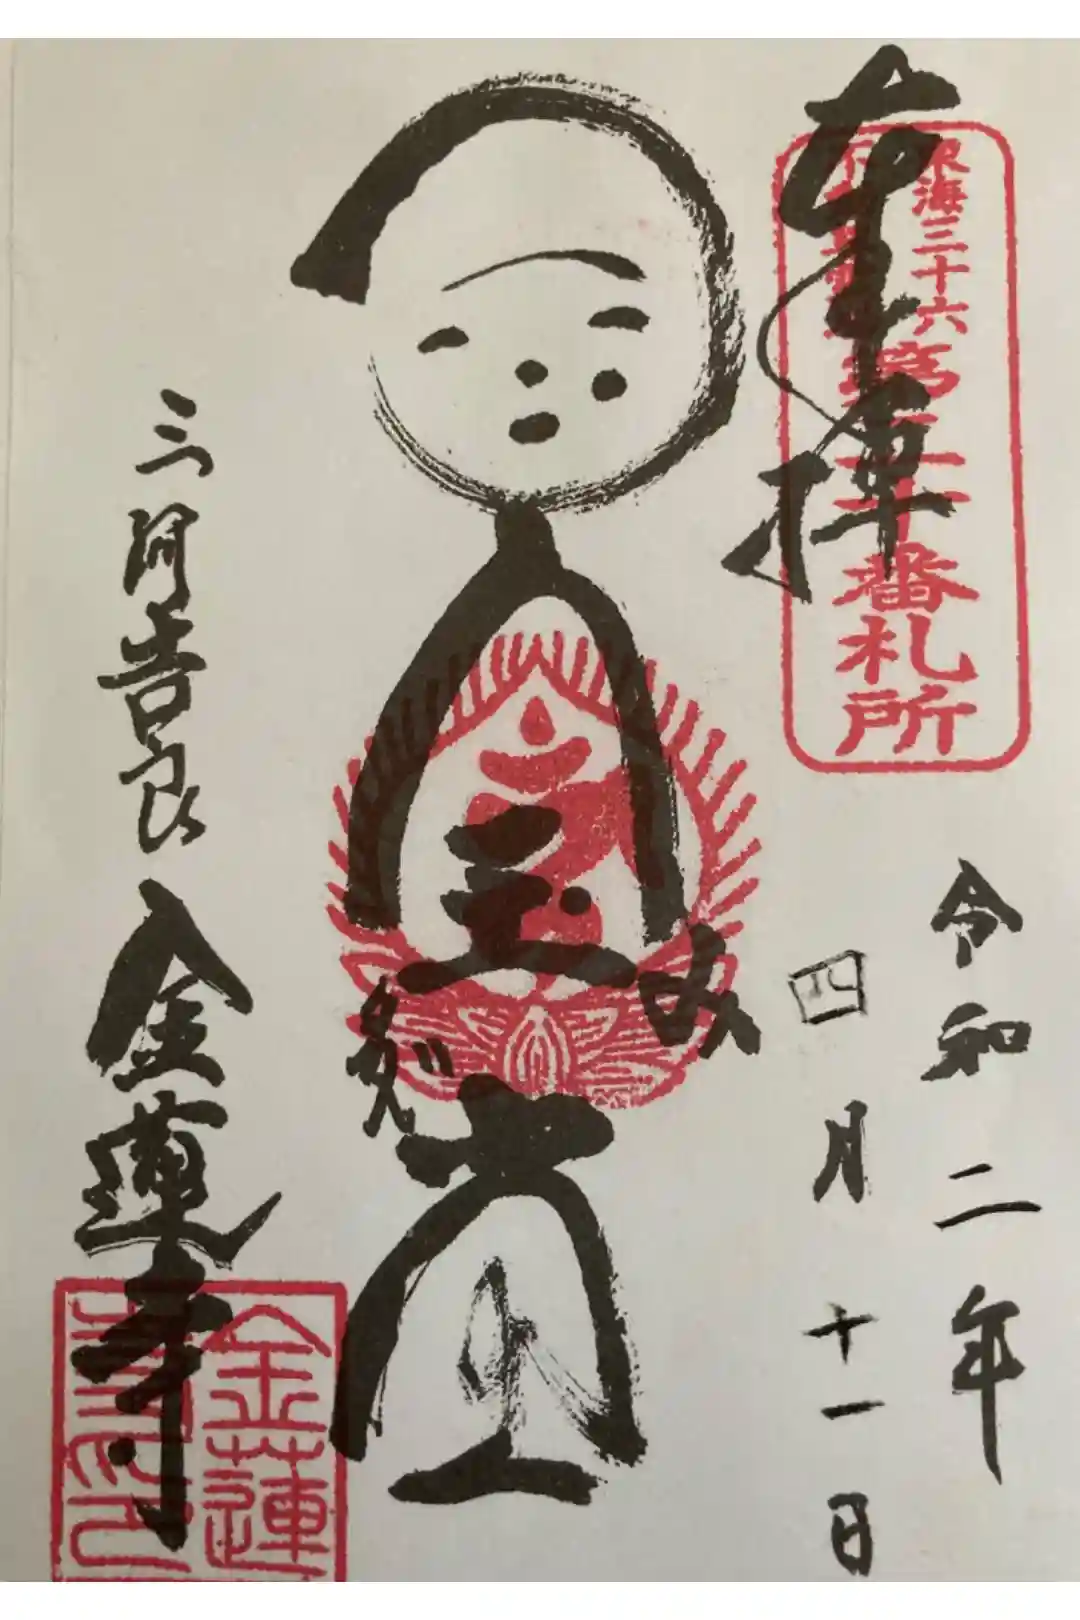 奉拝
東海三十六
不動尊霊場
第二十番札所
令和二年
四月十一日
み
堂
三河吉良
金蓮寺
金蓮
寺印